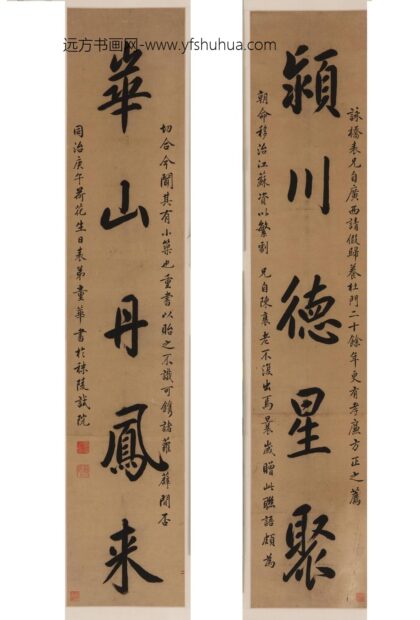 远方书画网-www.yfshuhua.com
詠橋表兄自廣西請假歸養杜門二十餘年更有孝廉方正之薦
潁川德星聚
朝命移治江蘇資以繁劇 兄自陳衰老不復出焉曩歲贈此聯語頗為
切合今聞其有小築也重書以貽之不識可鐫諸蘿薜間否
華山丹鳳来
同治庚午荷花生日表弟童華書於秣陵試院